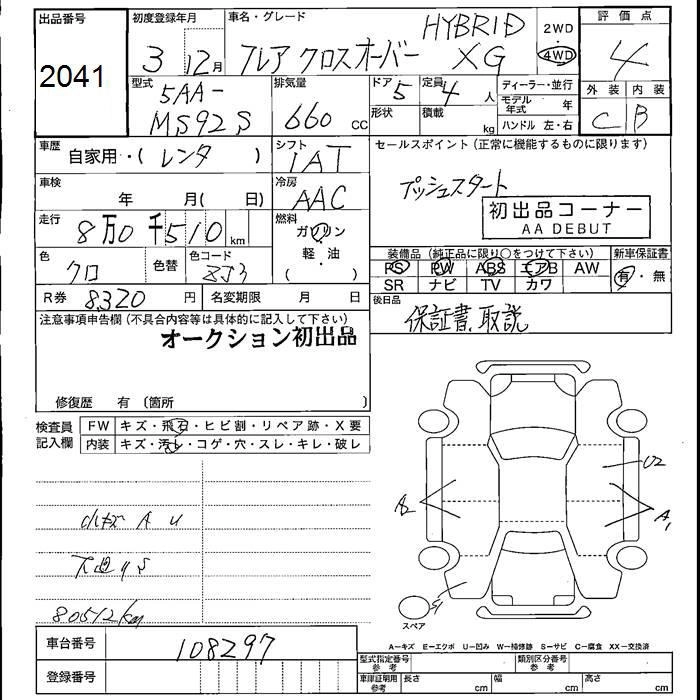 出品番号 初度登録年月 車名・グレード 評価点
2041 3 12月 フレア クロスオーバー HYBRID XG 2WD 4WD 4
型式 排気量 ドア 定員 ディーラー・並行 外装 内装
5AA-MS92S 660 cc 5 4人 モデル年式 年 C B
形状 積載 kg ハンドル 左・右
車歴 自家用・( レンタ ) シフト IAT セールスポイント(正常に機能するものに限ります)
車検 年 月( 日) 冷房 AAC プッシュスタート
初出品コーナー
AA DEBUT
走行 8万0千510km 燃料 ガソリン・軽油 ( )
装備品(純正品に限り○をつけて下さい) 新車保証書
色 クロ 色替 色コード ZJ3 PS PW ABS エアB AW 有・無
SR ナビ TV カワ
R券 8320円 名変期限 月 日 後日品
保証書、取説
注意事項申告欄(不具合内容等は具体的に記入して下さい)
オークション初出品
修復歴 有(箇所 )
検査員記入欄 FW キズ・飛石・ヒビ割・リペア跡・X要
内装 キズ・汚レ・コゲ・穴・スレ・キレ・破レ
U2
A2 A1
小キズ A U
下廻り S
80512km
S1
スペア
A－キズ E－エクボ U－凹み W－補修跡 S－サビ C－腐食 XX－交換済
車台番号 108297
型式指定番号 参考 類別区分番号 参考
登録番号 車庫証明用 参考 長さ cm 幅 cm 高さ cm